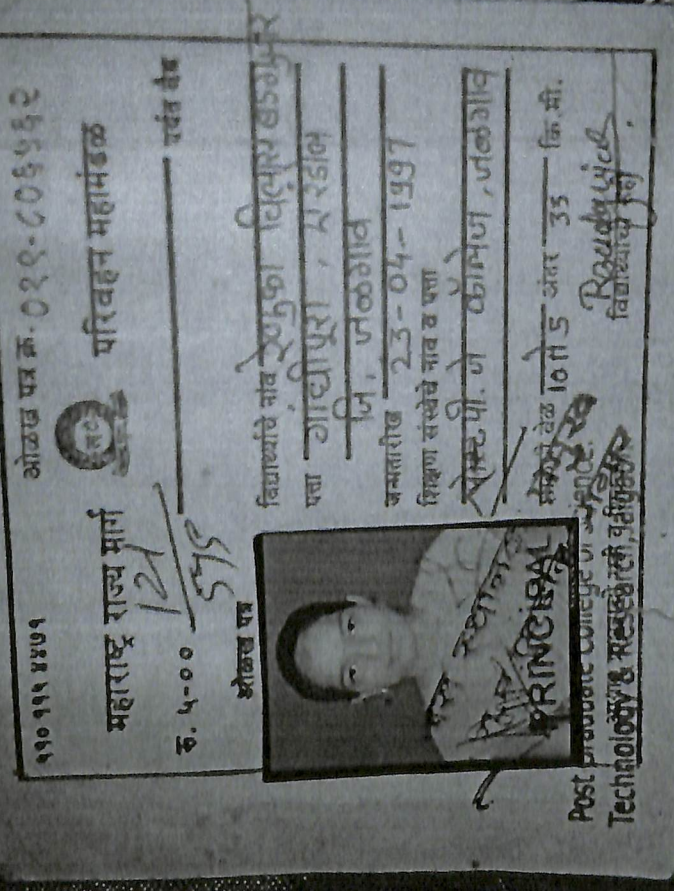 ११० ११५ ४४७१ ओळख पत्र क्र. ०२९-८०६५६२
महाराष्ट्र राज्य मार्ग परिवहन महामंडळ
121
545
रु. ५-०० पर्यंत वैध
ओळख पत्र
विद्यार्थ्याचे नांव रेणुका
पत्ता गांधीपूरा, एरंडोल
जि. जळगाव
जन्मतारीख 23-04-1997
शिक्षण संस्थेचे नाव व पत्ता
कॉलेज, जळगाव
वेळ 10 ते 5 अंतर 35 कि.मी.
विद्यार्थ्याची सही
PRINCIPAL
Post Graduate College of Science,
Technology & Research,